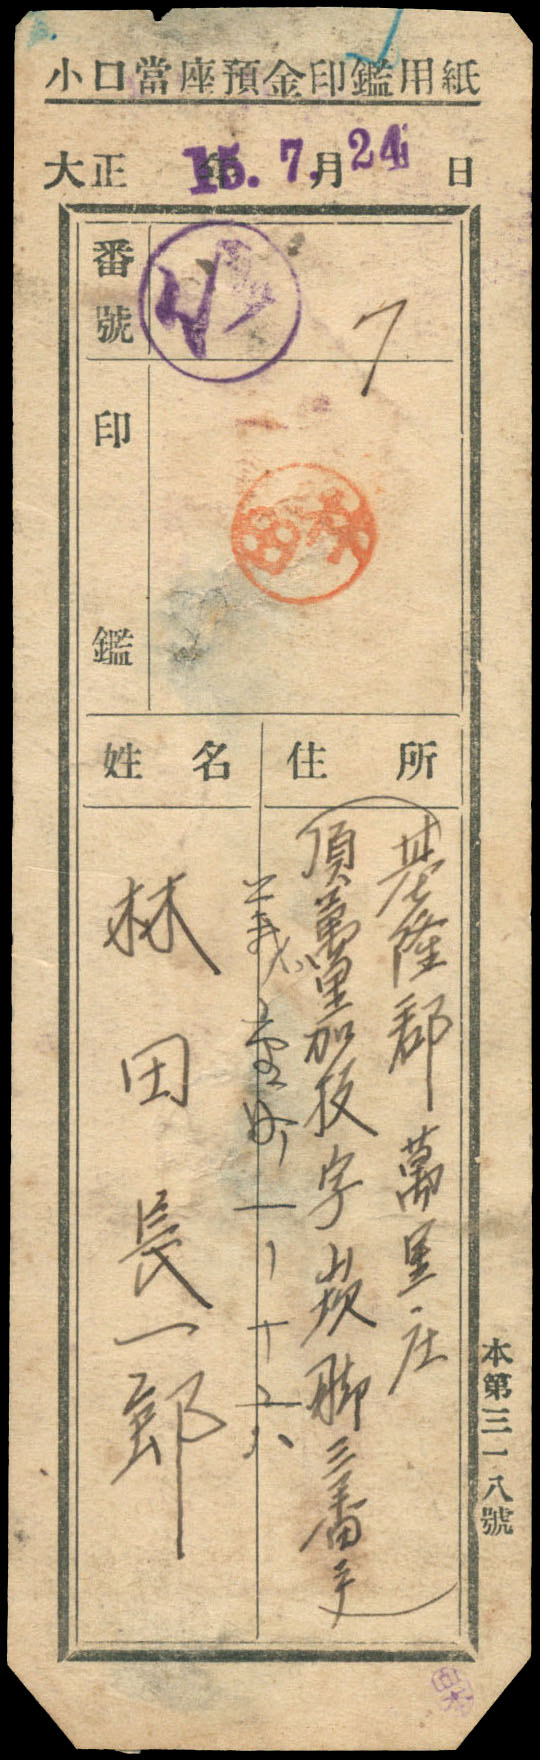 小口當座預金印鑑用紙
大正 15. 7. 月 24 日
番號
7
印鑑
林田
住所
姓名
基隆郡萬里庄
頂萬里加投字崁脚三番戸
義重町一ノ十六
林田長一郎
本第三一八號